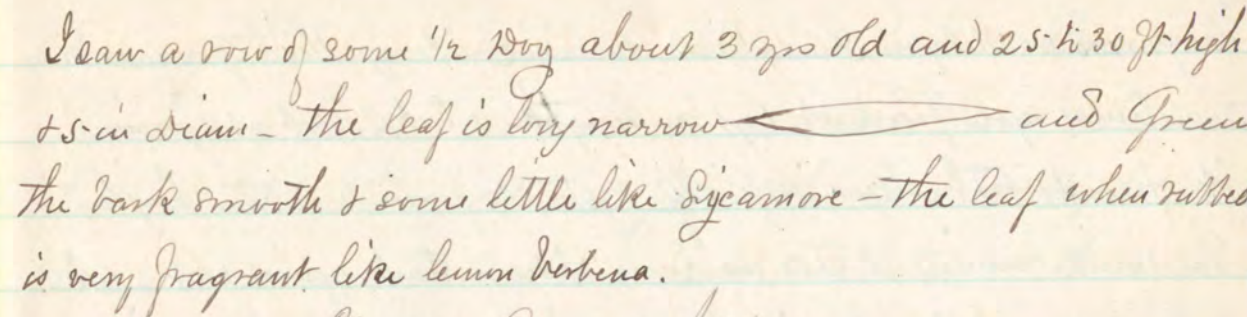 I saw a row of some ½ Doz about 3 yrs old and 25 to 30 ft high
& 5 in Diam - the leaf is long narrow and Green
the bark smooth & some little like Sycamore - the leaf when rubbed
is very fragrant like lemon Verbena.